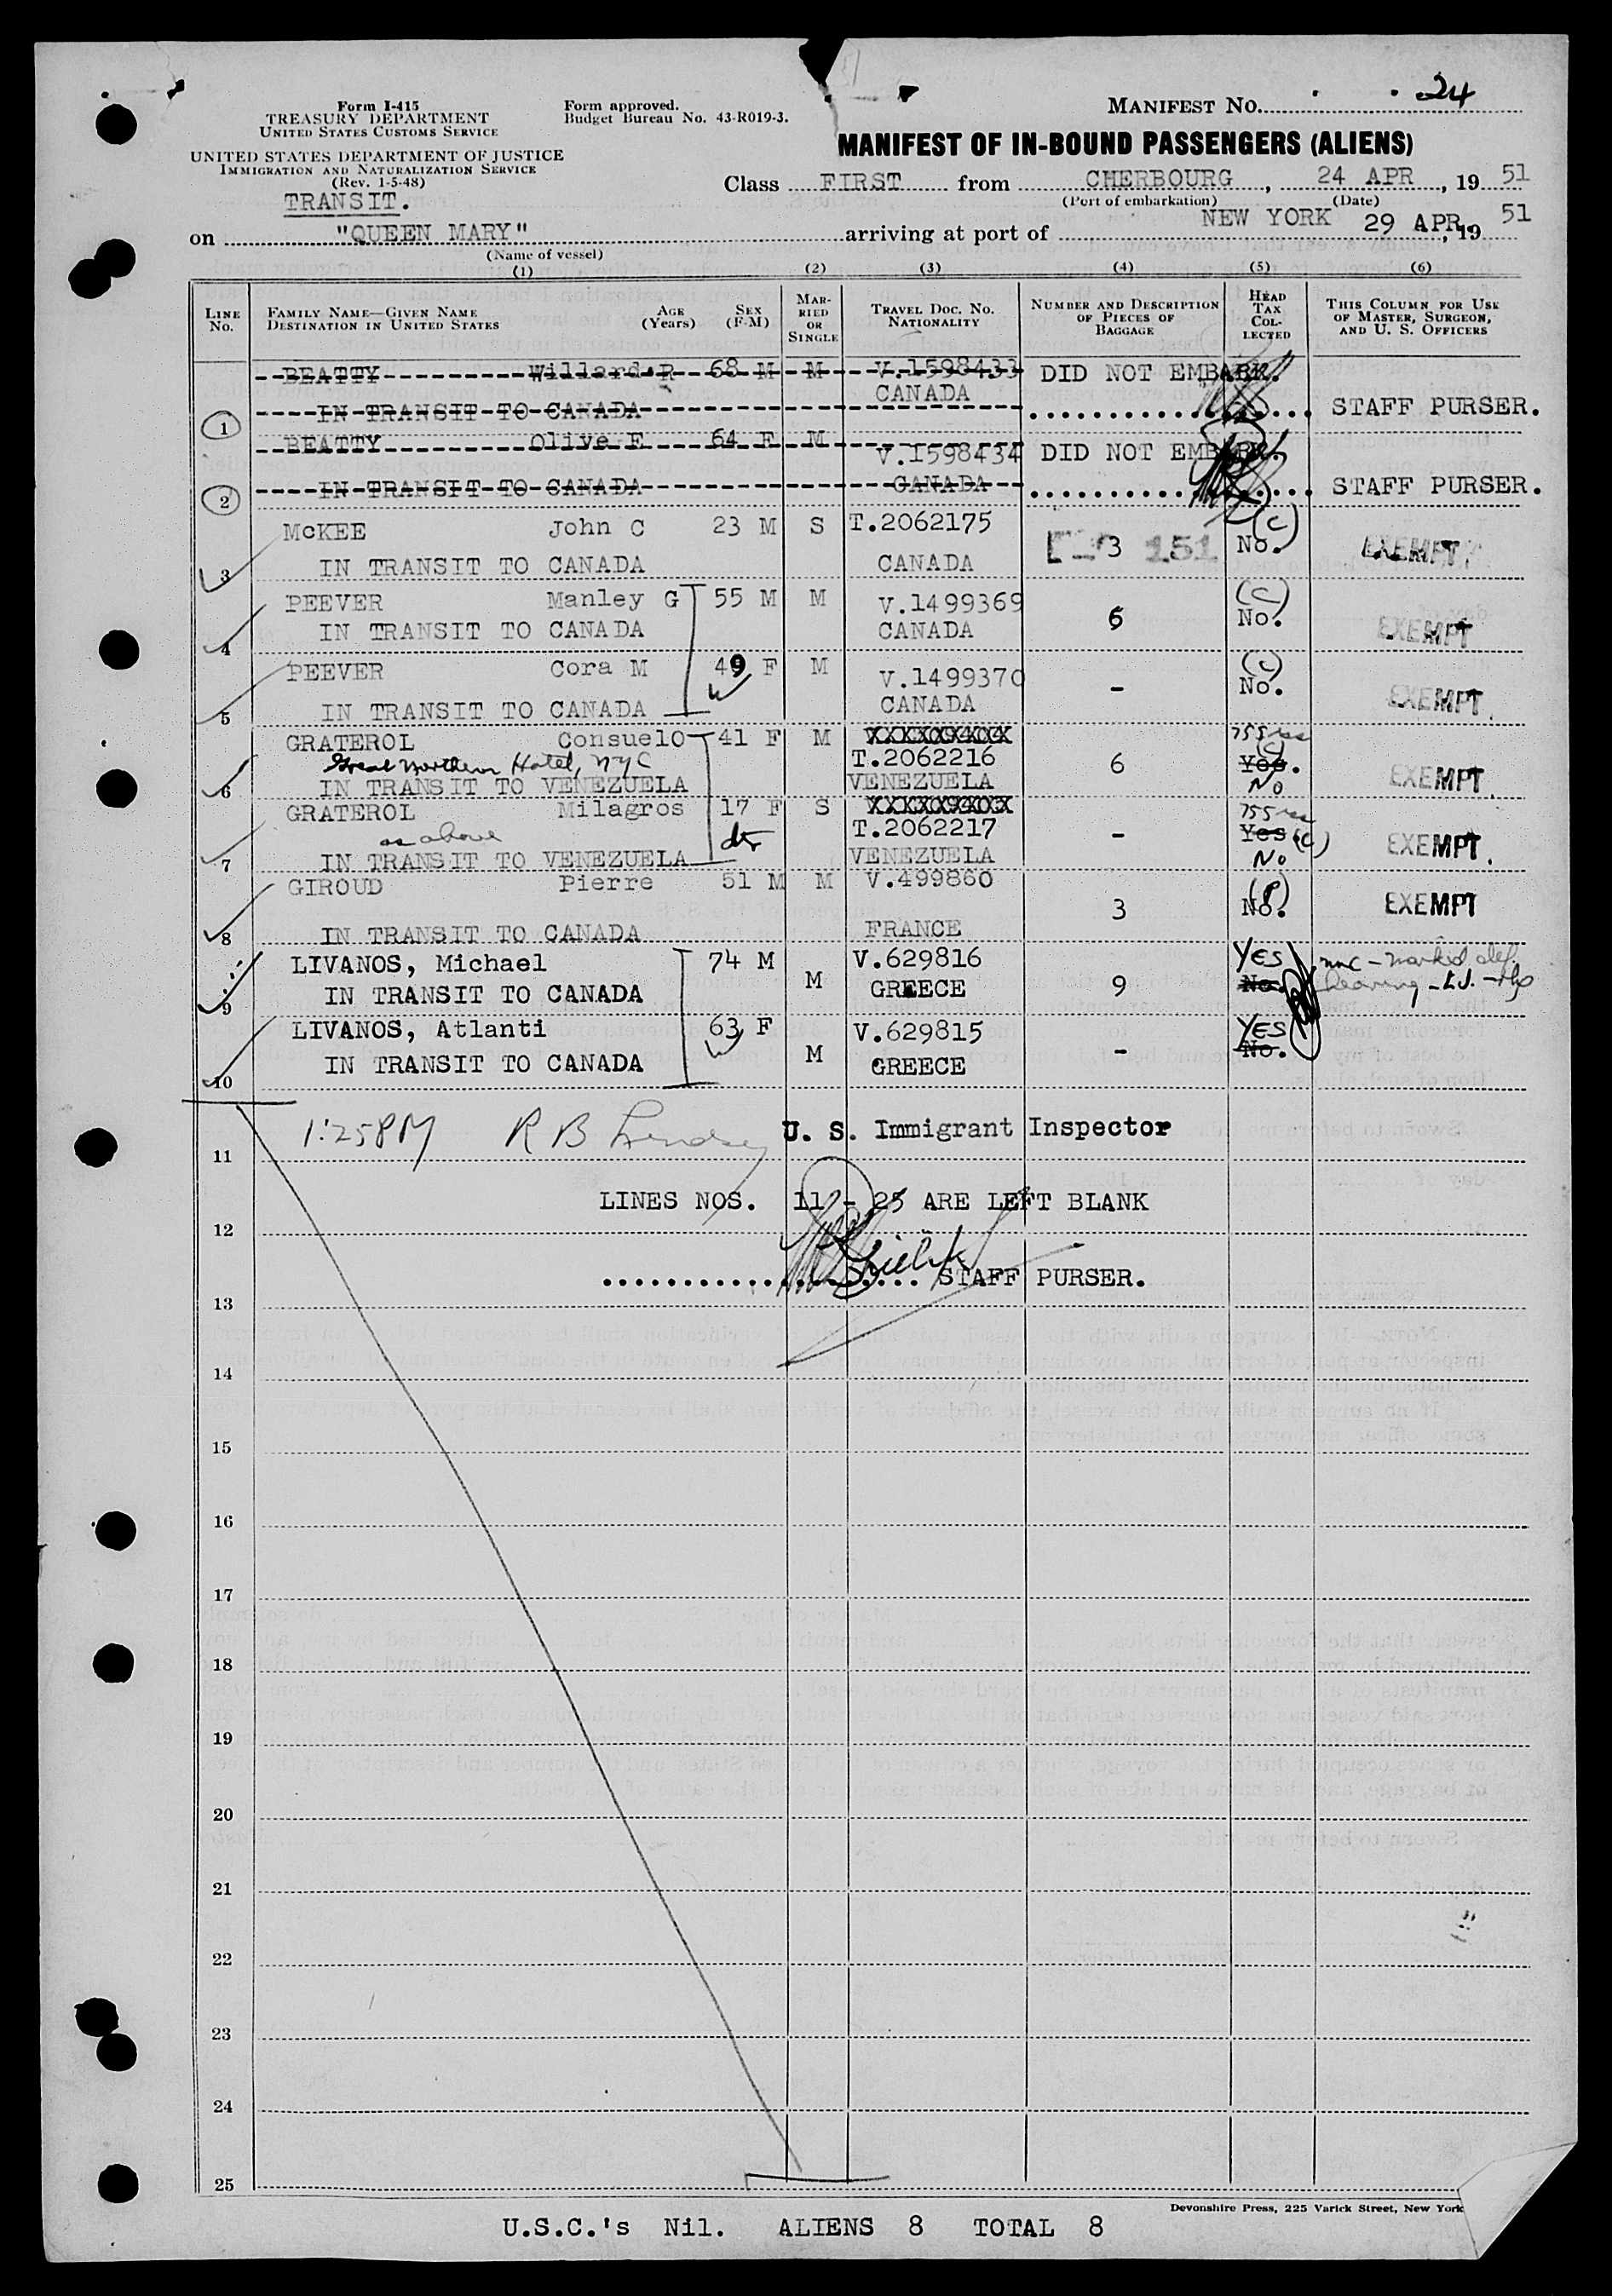 MANIFEST NO. 24
Form I-415
TREASURY DEPARTMENT
UNITED STATES CUSTOMS SERVICE
Form approved.
Budget Bureau No. 43-R019-3.
MANIFEST OF IN-BOUND PASSENGERS (ALIENS)
UNITED STATES DEPARTMENT OF JUSTICE
IMMIGRATION AND NATURALIZATION SERVICE
(Rev. 1-5-48)
TRANSIT.
Class FIRST from CHERBOURG, 24 APR, 19 51
(Port of embarkation) (Date)
on "QUEEN MARY" arriving at port of NEW YORK 29 APR, 19 51
(Name of vessel)
(1) (2) (3) (4) (5) (6)
LINE NO. FAMILY NAME—GIVEN NAME DESTINATION IN UNITED STATES AGE (Years) SEX (F-M) MARRIED OR SINGLE TRAVEL DOC. NO. NATIONALITY NUMBER AND DESCRIPTION OF PIECES OF BAGGAGE HEAD TAX COLLECTED THIS COLUMN FOR USE OF MASTER, SURGEON, AND U. S. OFFICERS
BEATTY Willard R 68 M M V.1598433 DID NOT EMBARK.
CANADA
1 IN TRANSIT TO CANADA STAFF PURSER.
BEATTY Olive E 64 F M V.1598434 DID NOT EMBARK.
2 IN TRANSIT TO CANADA CANADA STAFF PURSER.
McKEE John C 23 M S T.2062175 3 151 (C) No. EXEMPT
3 IN TRANSIT TO CANADA CANADA
PEEVER Manley G 55 M M V.1499369 6 (C) No.
4 IN TRANSIT TO CANADA CANADA EXEMPT
PEEVER Cora M 49 F M V.1499370 - (C) No.
W
5 IN TRANSIT TO CANADA CANADA EXEMPT.
GRATEROL Consuelo 41 F M XXXX09404X 755
Great Northern Hotel, NYC T.2062216 6 (C) Yes.
6 IN TRANSIT TO VENEZUELA VENEZUELA No EXEMPT.
GRATEROL Milagros 17 F S XXXX09403X 755
as above dtr T.2062217 - Yes (C)
7 IN TRANSIT TO VENEZUELA VENEZUELA No EXEMPT.
GIROUD Pierre 51 M M V.499860
3 (P) No. EXEMPT
8 IN TRANSIT TO CANADA FRANCE
LIVANOS, Michael 74 M V.629816 YES
9 IN TRANSIT TO CANADA M GREECE 9 No. hearing
LIVANOS, Atlanti 63 F V.629815 YES
W
10 IN TRANSIT TO CANADA M GREECE - No.
1:25PM R B Lindsey U. S. Immigrant Inspector
11
LINES NOS. 11 - 25 ARE LEFT BLANK
12
STAFF PURSER.
13
14
15
16
17
18
19
20
21
22
23
24
25
Devonshire Press, 225 Varick Street, New York
U.S.C.'s Nil. ALIENS 8 TOTAL 8